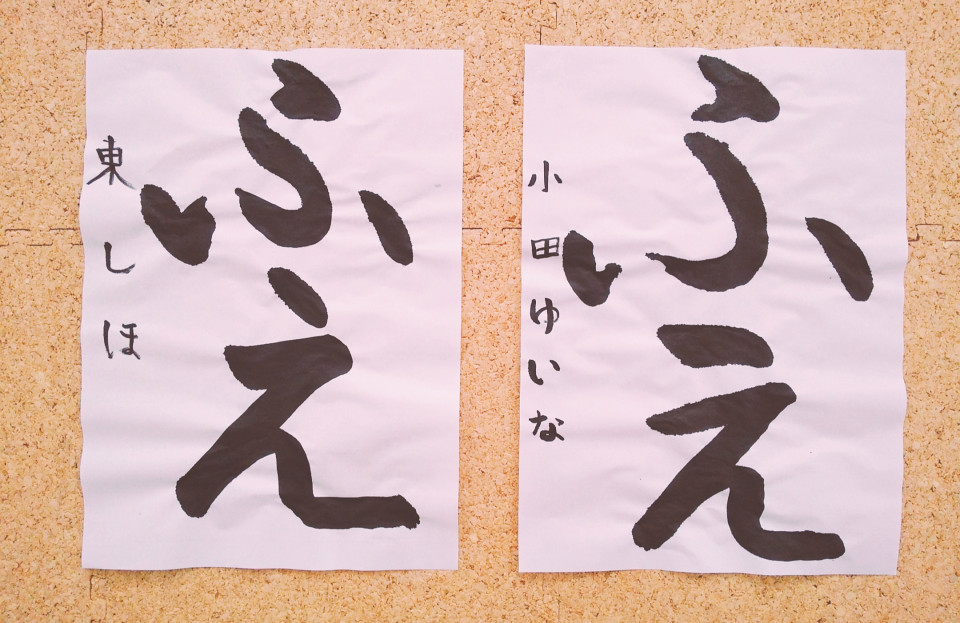 ふえ
東しほ
ふえ
小田ゆいな